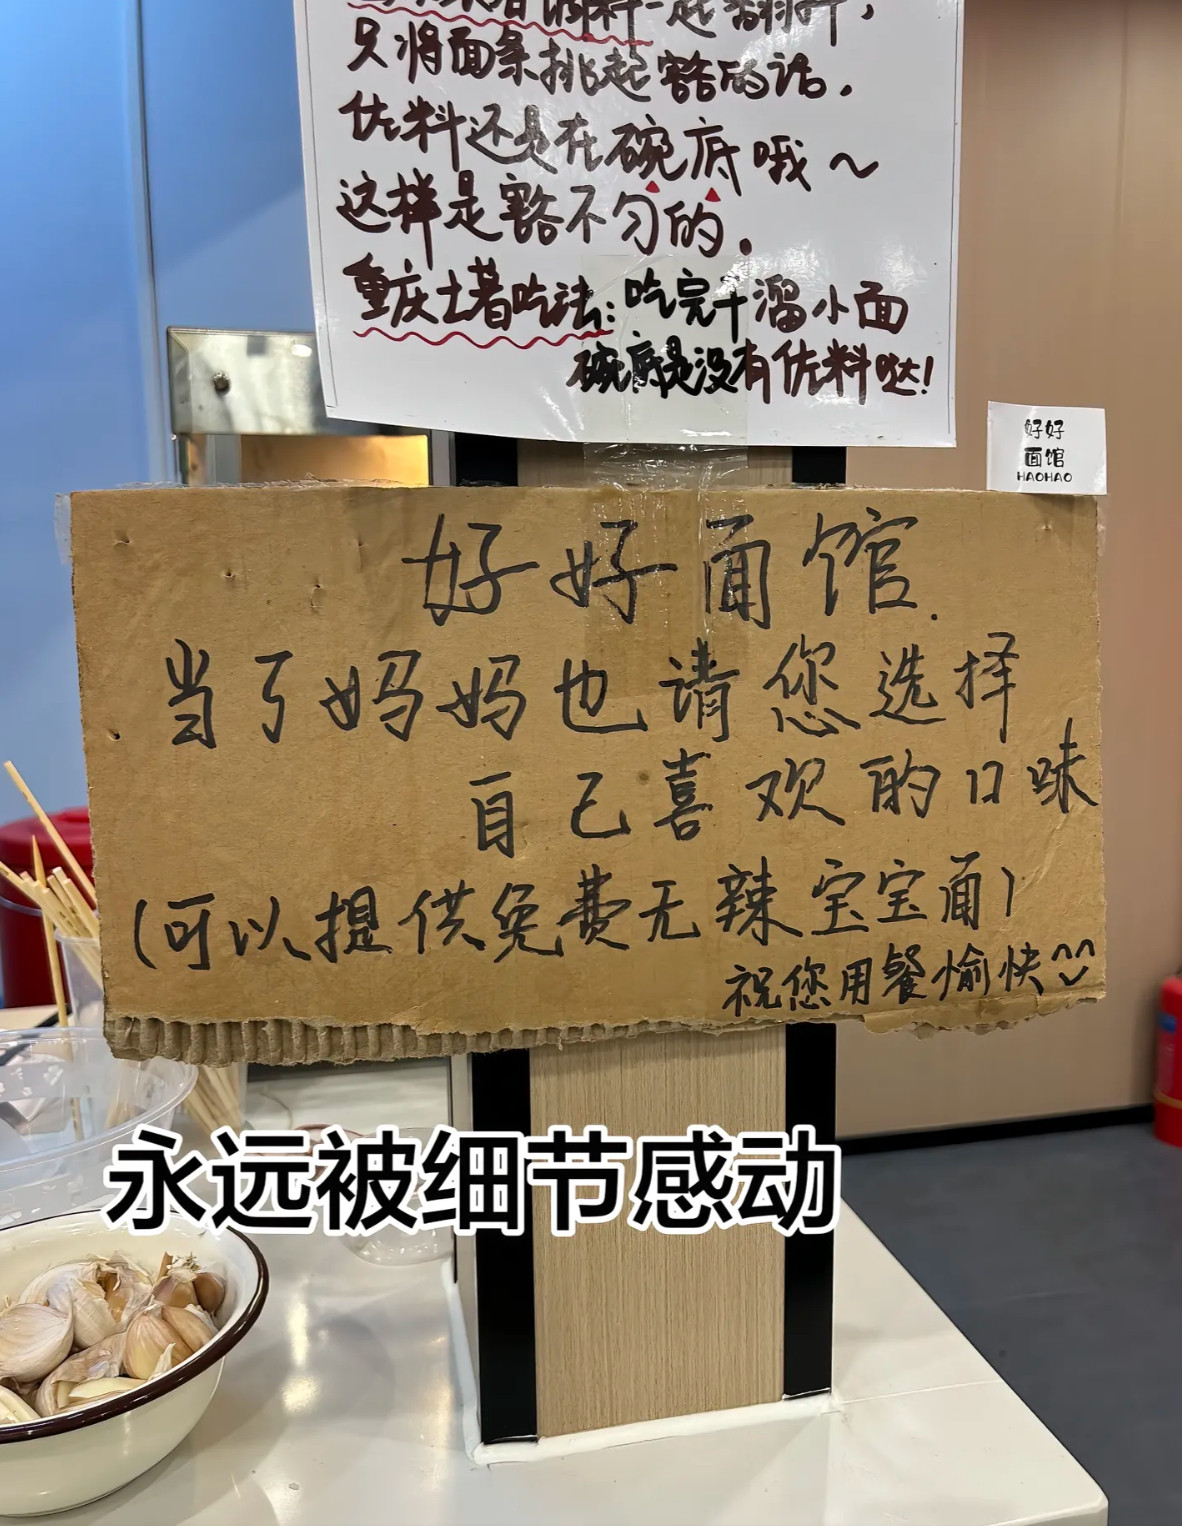 只将面条挑起豁的话，
佐料还是在碗底哦～
这样是豁不匀的。
重庆土著吃法：吃完干溜小面
碗底是没有佐料哒！
好好
面馆
HAOHAO
好好面馆.
当了妈妈也请您选择
自己喜欢的口味
（可以提供免费无辣宝宝面）
祝您用餐愉快^^
永远被细节感动